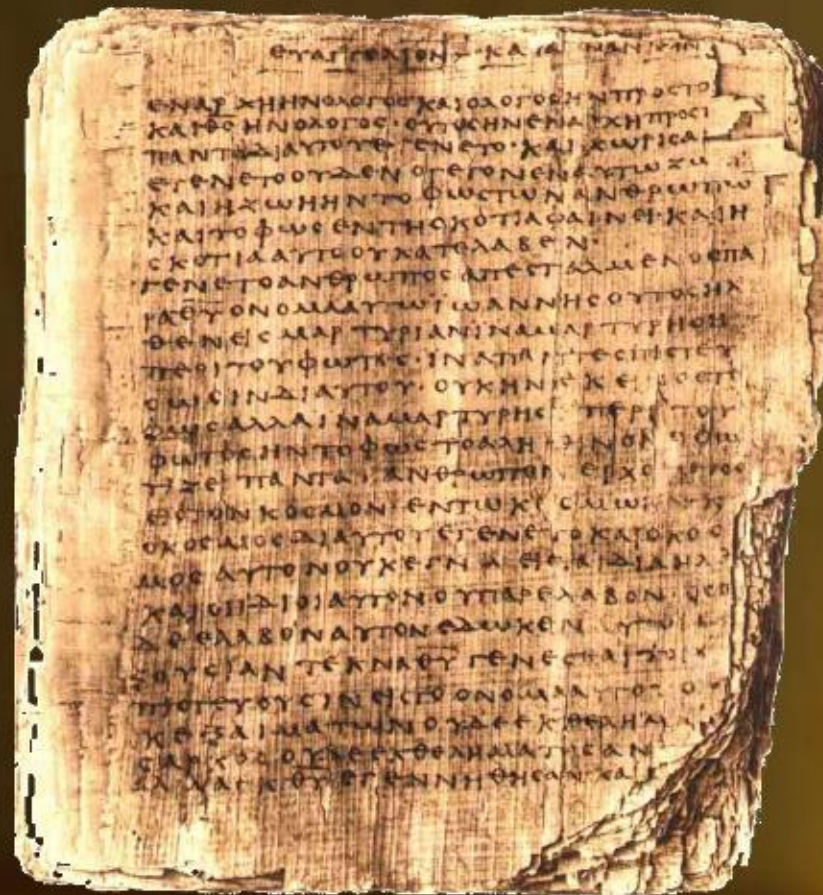 ΕΥΑΓΓΕΛΙΟΝ ΚΑΤΑ
ΕΝΑΡΧΗΗΝΟΛΟΓΟϹΚΑΙΟΛΟΓΟϹΗΝΠΡΟϹΤΟ
ΚΑΙΘ̅Ϲ̅ΗΝΟΛΟΓΟϹ·ΟΥΤΟϹΗΝΕΝΑΡΧΗΠΡΟϹΤ
ΠΑΝΤΑΔΙΑΥΤΟΥΕΓΕΝΕΤΟ·ΚΑΙΧΩΡΙϹΑ
ΕΓΕΝΕΤΟΟΥΔΕΝΟΓΕΓΟΝΕΝΑΥΤΩΖΩ
ΚΑΙΗΖΩΗΗΝΤΟΦΩϹΤΩΝΑΝΘΡΩΠΩ
ΚΑΙΤΟΦΩϹΕΝΤΗϹΚΟΤΙΑΦΑΙΝΕΙ·ΚΑΙΗ
ϹΚΟΤΙΑΑΥΤΟΟΥΚΑΤΕΛΑΒΕΝ·
ΓΕΝΕΤΟΑΝΘΡΩΠΟϹΑΠΕϹΤΑΛΜΕΝΟϹΠΑ
ΡΑΘ̅Υ̅ΟΝΟΜΑΑΥΤΩΙΩΑΝΝΗϹΟΥΤΟϹΗΛ
ΘΕΝΕΙϹΜΑΡΤΥΡΙΑΝΙΝΑΜΑΡΤΥΡΗϹΗ
ΠΕΡΙΤΟΥΦΩΤΟϹ·ΙΝΑΠΑΝΤΕϹΠΙϹΤΕΥ
ϹΩϹΙΝΔΙΑΥΤΟΥ·ΟΥΚΗΝΕΚΕΙΝΟϹΤΟ
ΦΩϹΑΛΛΑΙΝΑΜΑΡΤΥΡΗϹΗΠΕΡΙΤΟΥ
ΦΩΤΟϹΗΝΤΟΦΩϹΤΟΑΛΗΘΙΝΟΝΟΦΩ
ΤΙΖΕΙΠΑΝΤΑΑΝΘΡΩΠΟΝΕΡΧΟ
ΕΙϹΤΟΝΚΟϹΜΟΝ·ΕΝΤΩΚΟϹΜΩΗΝΚ
ΟΚΟϹΜΟϹΔΙΑΥΤΟΥΕΓΕΝΕΤΟΚΑΙΟΚΟϹ
ΜΟϹΑΥΤΟΝΟΥΚΕΓΝΩΕΙϹΤΑΙΔΙΑΗΛ
ΚΑΙΟΙΙΔΙΟΙΑΥΤΟΝΟΥΠΑΡΕΛΑΒΟΝ·ΟϹΟ
ΔΕΕΛΑΒΟΝΑΥΤΟΝΕΔΩΚΕΝΑΥΤΟΙ
ΞΟΥϹΙΑΝΤΕΚΝΑΘ̅Υ̅ΓΕΝΕϹΘΑΙΤΟΙϹ
ΠΙϹΤΕΥΟΥϹΙΝΕΙϹΤΟΟΝΟΜΑΑΥΤΟΥΟ
ΚΕΞΑΙΜΑΤΩΝΟΥΔΕΕΚΘΕΛΗΜΑ
ϹΑΡΚΟϹΟΥΔΕΕΚΘΕΛΗΜΑΤΟϹΑΝ
ΑΛΛΑΕΚΘ̅Υ̅ΕΓΕΝΝΗΘΗϹΑΝΚΑΙ